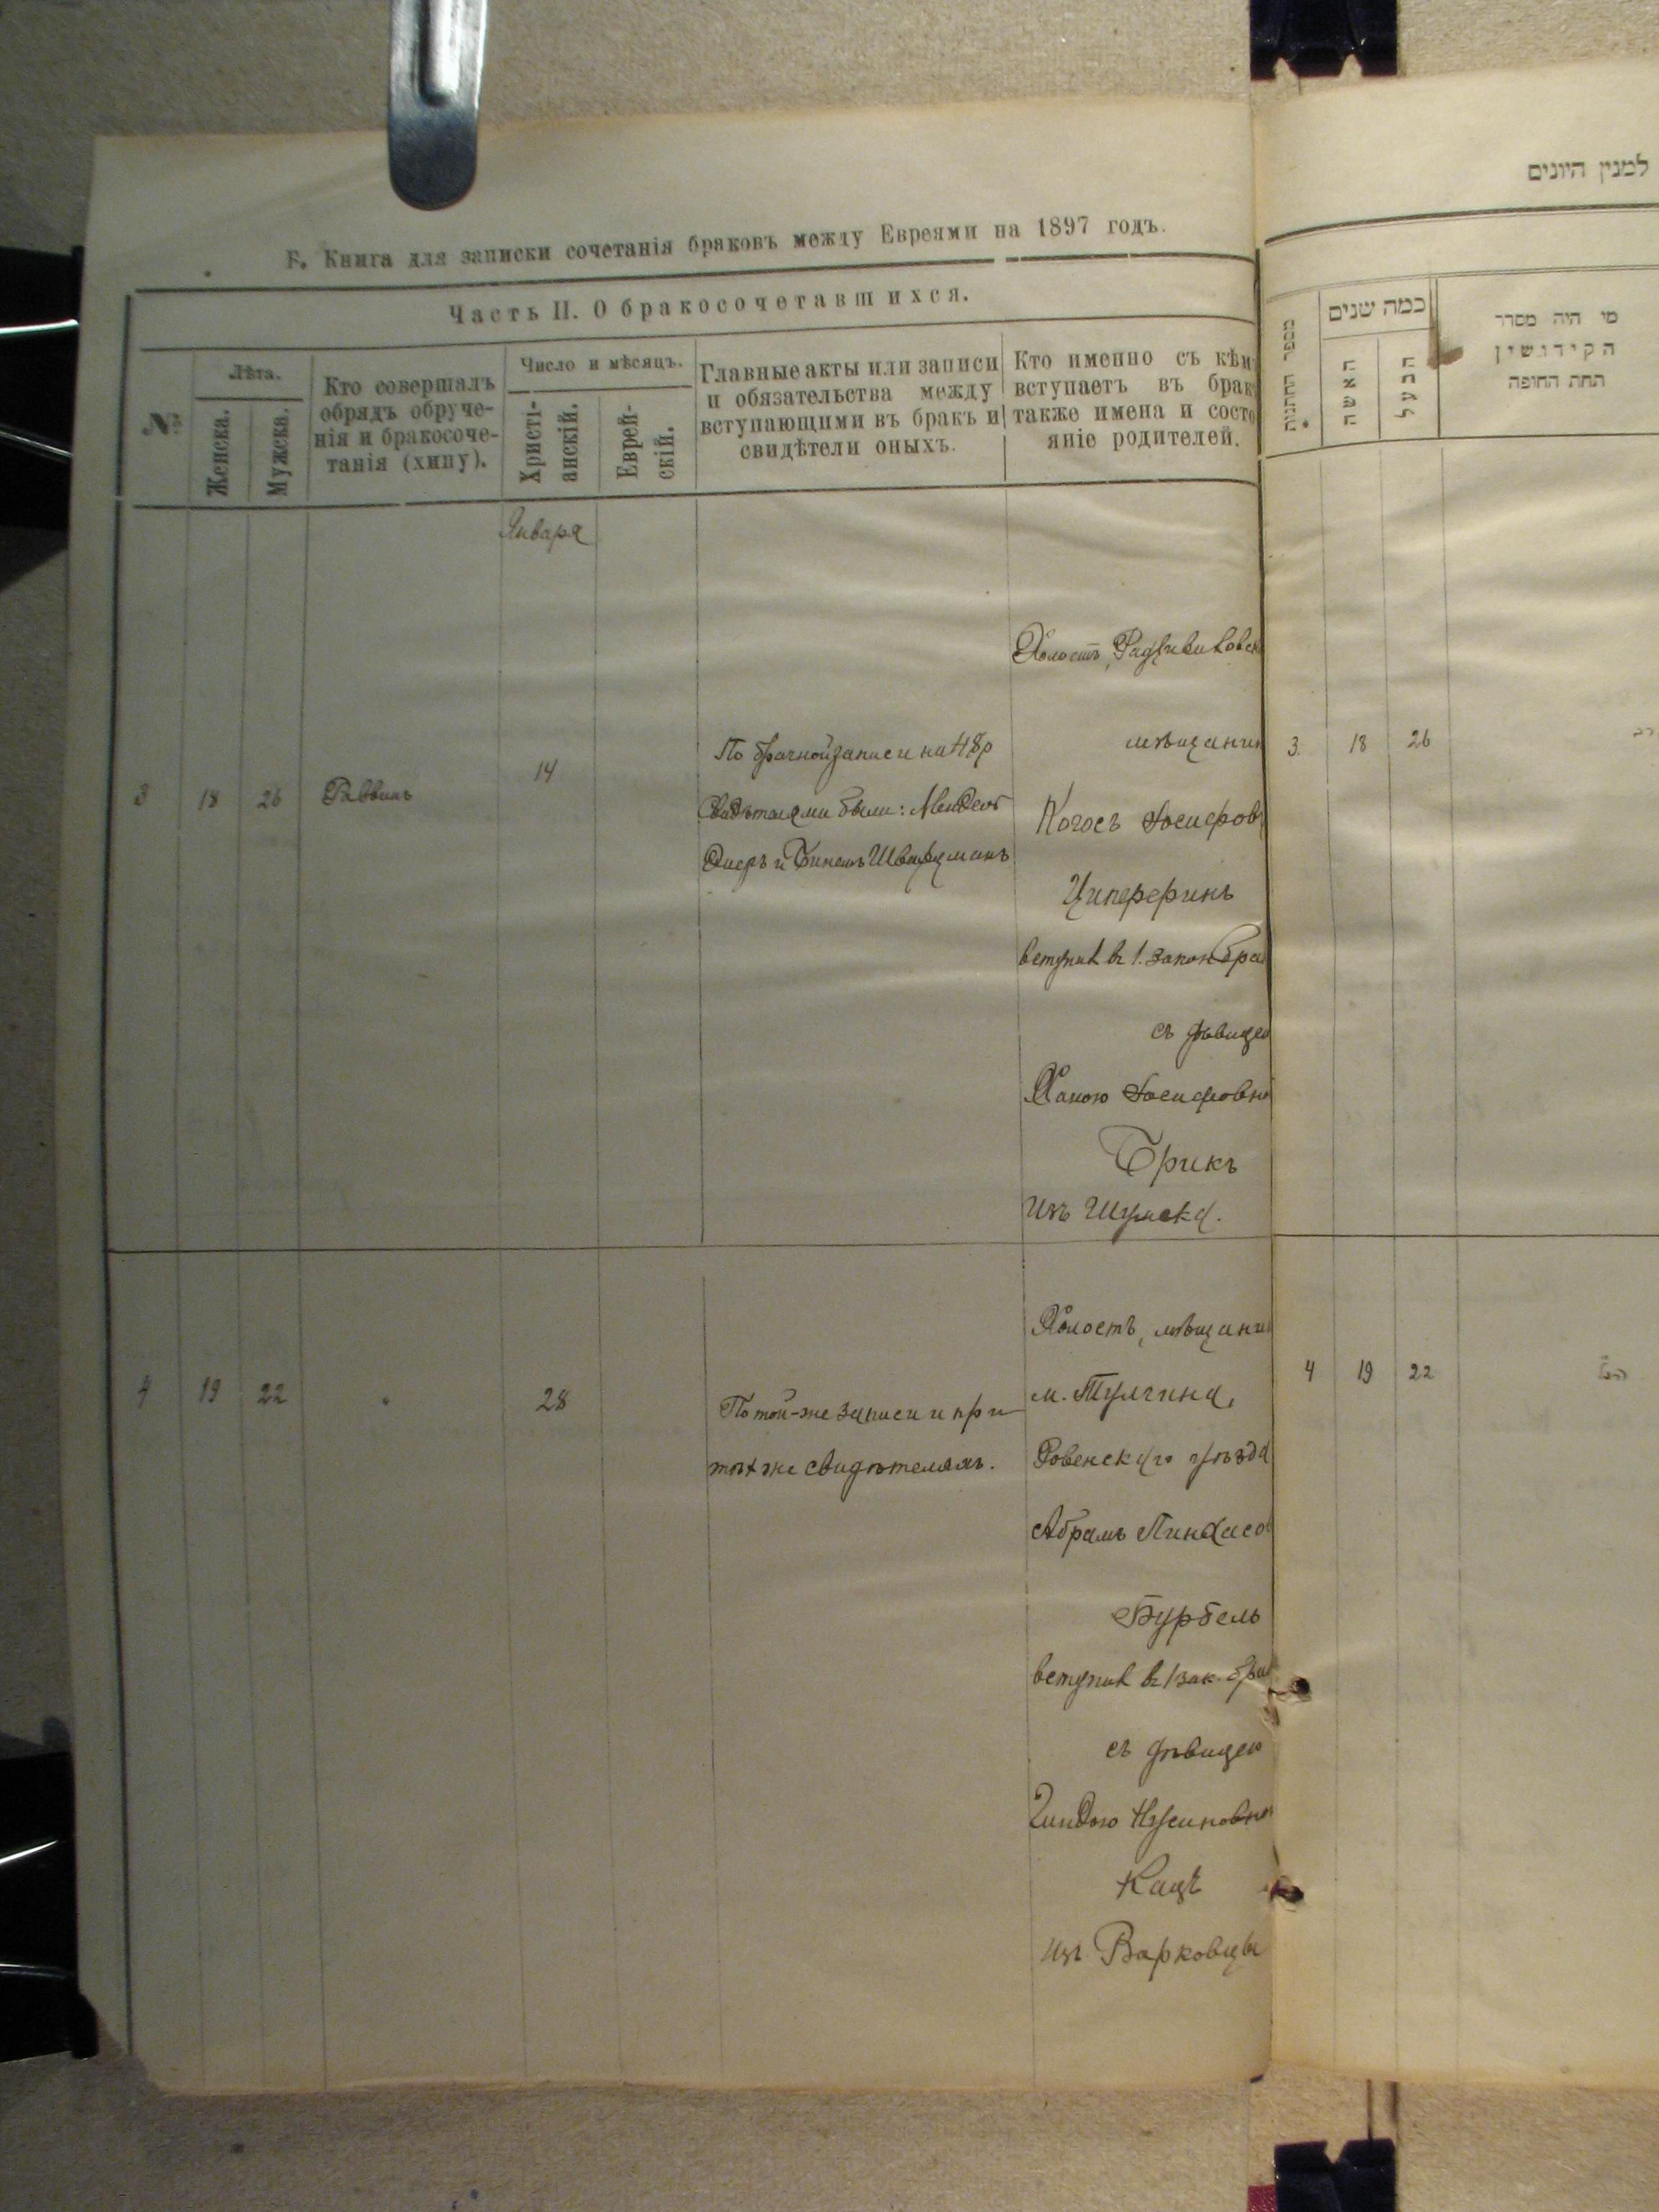 Б. Книга для записки сочетанія браковъ между Евреями на 1897 годъ.
Часть II. О бракосочетавшихся.
№
Лѣта.
Женска.
Мужска.
Кто совершалъ
обрядъ обруче-
нія и бракосоче-
танія (хипу).
Число и мѣсяцъ.
Христі-
анскій.
Еврей-
скій.
Главные акты или записи
и обязательства между
вступающими въ бракъ и
свидѣтели оныхъ.
Кто именно съ кѣм
вступаетъ въ брак
также имена и состо
яніе родителей.
Января
3
18
26
Раввинъ
14
По брачной записи на 48р
Свидѣтелями были: Мендель
и Шварцманъ
Холостъ, Радзивиловск
мѣщанин
Іосифов
Циперфинъ
вступил в 1. закон бра
съ дѣвицею
Ханою Іосифовно
Брикъ
Изъ Шумска.
4
19
22
"
28
По той-же записи и при
тѣх же свидѣтеляхъ.
Холостъ, мѣщанин
м. Тучина,
Ровенскаго уѣзда
Абрамъ Пинхасов
Бурбель
вступил в 1 зак. бра
съ дѣвицею
Кацъ
изъ Варковицы
למנין היונים
מספר החתונות
כמה שנים
האשה
הבעל
מי היה מסדר
הקידושין
תחת החופה
3.
18
26
רב
4
19
22